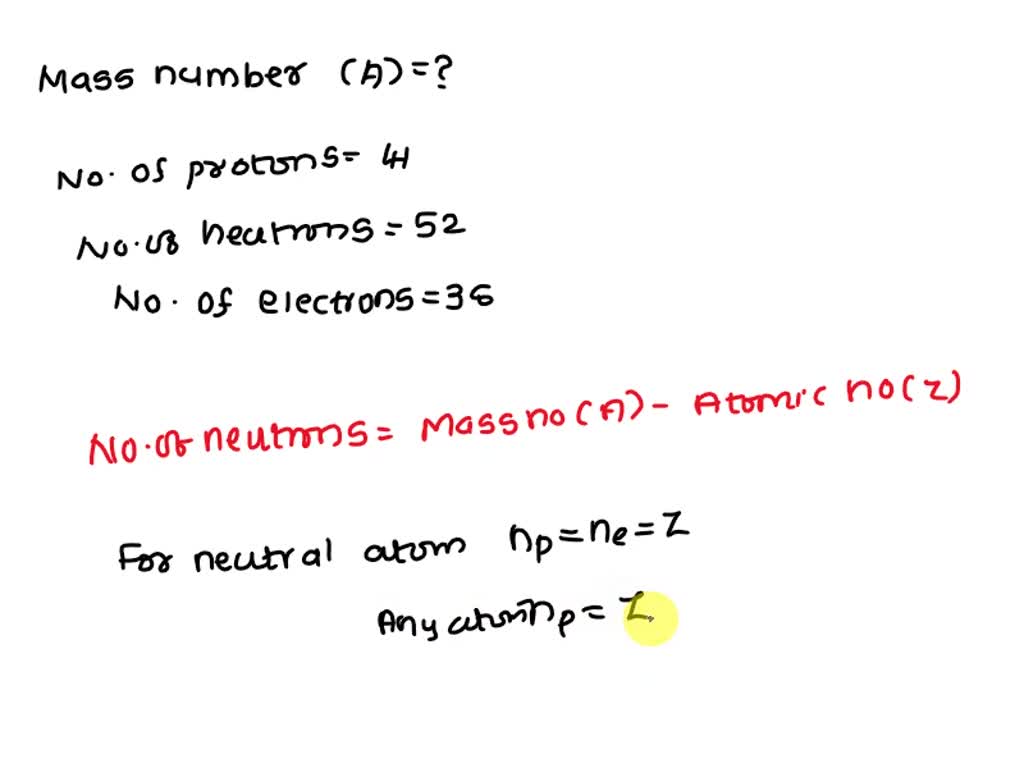 Mass number (A)=?
No. of protons= 41
No. of neutrons = 52
No. of electrons=36
No. of neutrons= Mass no (A) - Atomic no (Z)
For neutral atom np=ne=Z
Any atom np= Z